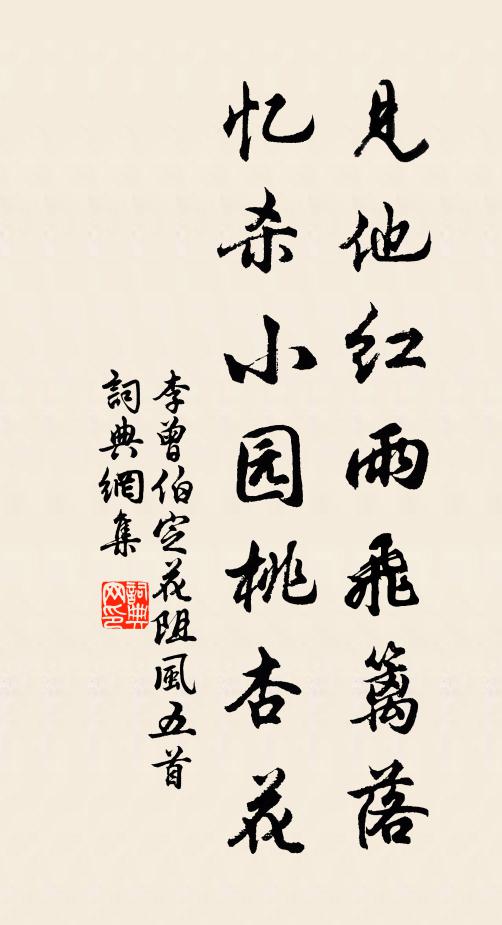 见他红雨飛篱落
忆杀小园桃杏花
李曾伯定花阻風五首
詞典網集
詞典网印